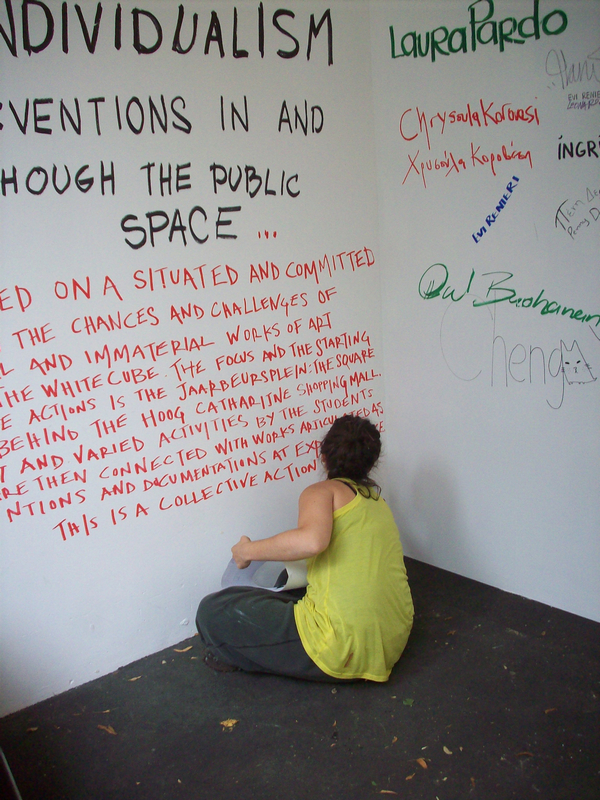 NDIVIDUALISM
VENTIONS IN AND
HOUGH THE PUBLIC
SPACE ...
ED ON A SITUATED AND COMMITTED
THE CHANCES AND CHALLENGES OF
L AND IMMATERIAL WORKS OF ART
THE WHITE CUBE. THE FOCUS AND THE STARTING
E ACTIONS IS THE JAARBEURSPLEIN: THE SQUARE
BEHIND THE HOOG CATHARIJNE SHOPPING MALL.
T AND VARIED ACTIVITIES BY THE STUDENTS
RE THEN CONNECTED WITH WORKS ARTICULATED AS
NTIONS AND DOCUMENTATIONS AT EXP
THIS IS A COLLECTIVE ACTION
Laura Pardo
EVI RENIE
Chrysoula Korovesi
Χρυσούλα Κοροβέση
ÍNGRI
EVI RENIERI
Cheng